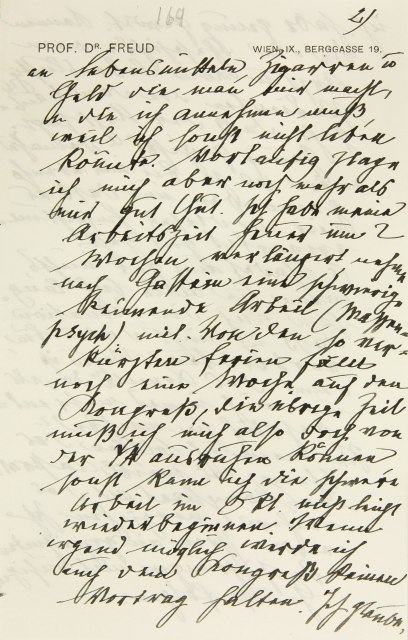 169
2)
PROF. DR. FREUD
WIEN, IX., BERGGASSE 19.
an Lebensmitteln, Zigarren u
Geld die man mir macht,
u die ich annehmen muß
weil ich sonst nicht leben
könnte. Vorläufig plage
ich mich aber noch mehr als
mir gut thut. Ich habe meine
Arbeitszeit heuer um 2
Wochen verlängert nehme
nach Gastein eine schwierige
keimende Arbeit (Massen-
psych) mit. Von den so ver-
kürzten Ferien fällt
noch eine Woche auf den
Kongreß, die übrige Zeit
muß ich mich also doch von
der ΨA ausruhen können
sonst kann ich die schwere
Arbeit im Okt nicht leicht
wiederbeginnen. Wenn
irgend möglich werde ich
auch dem Kongreß keinen
Vortrag halten. Ich glaube,